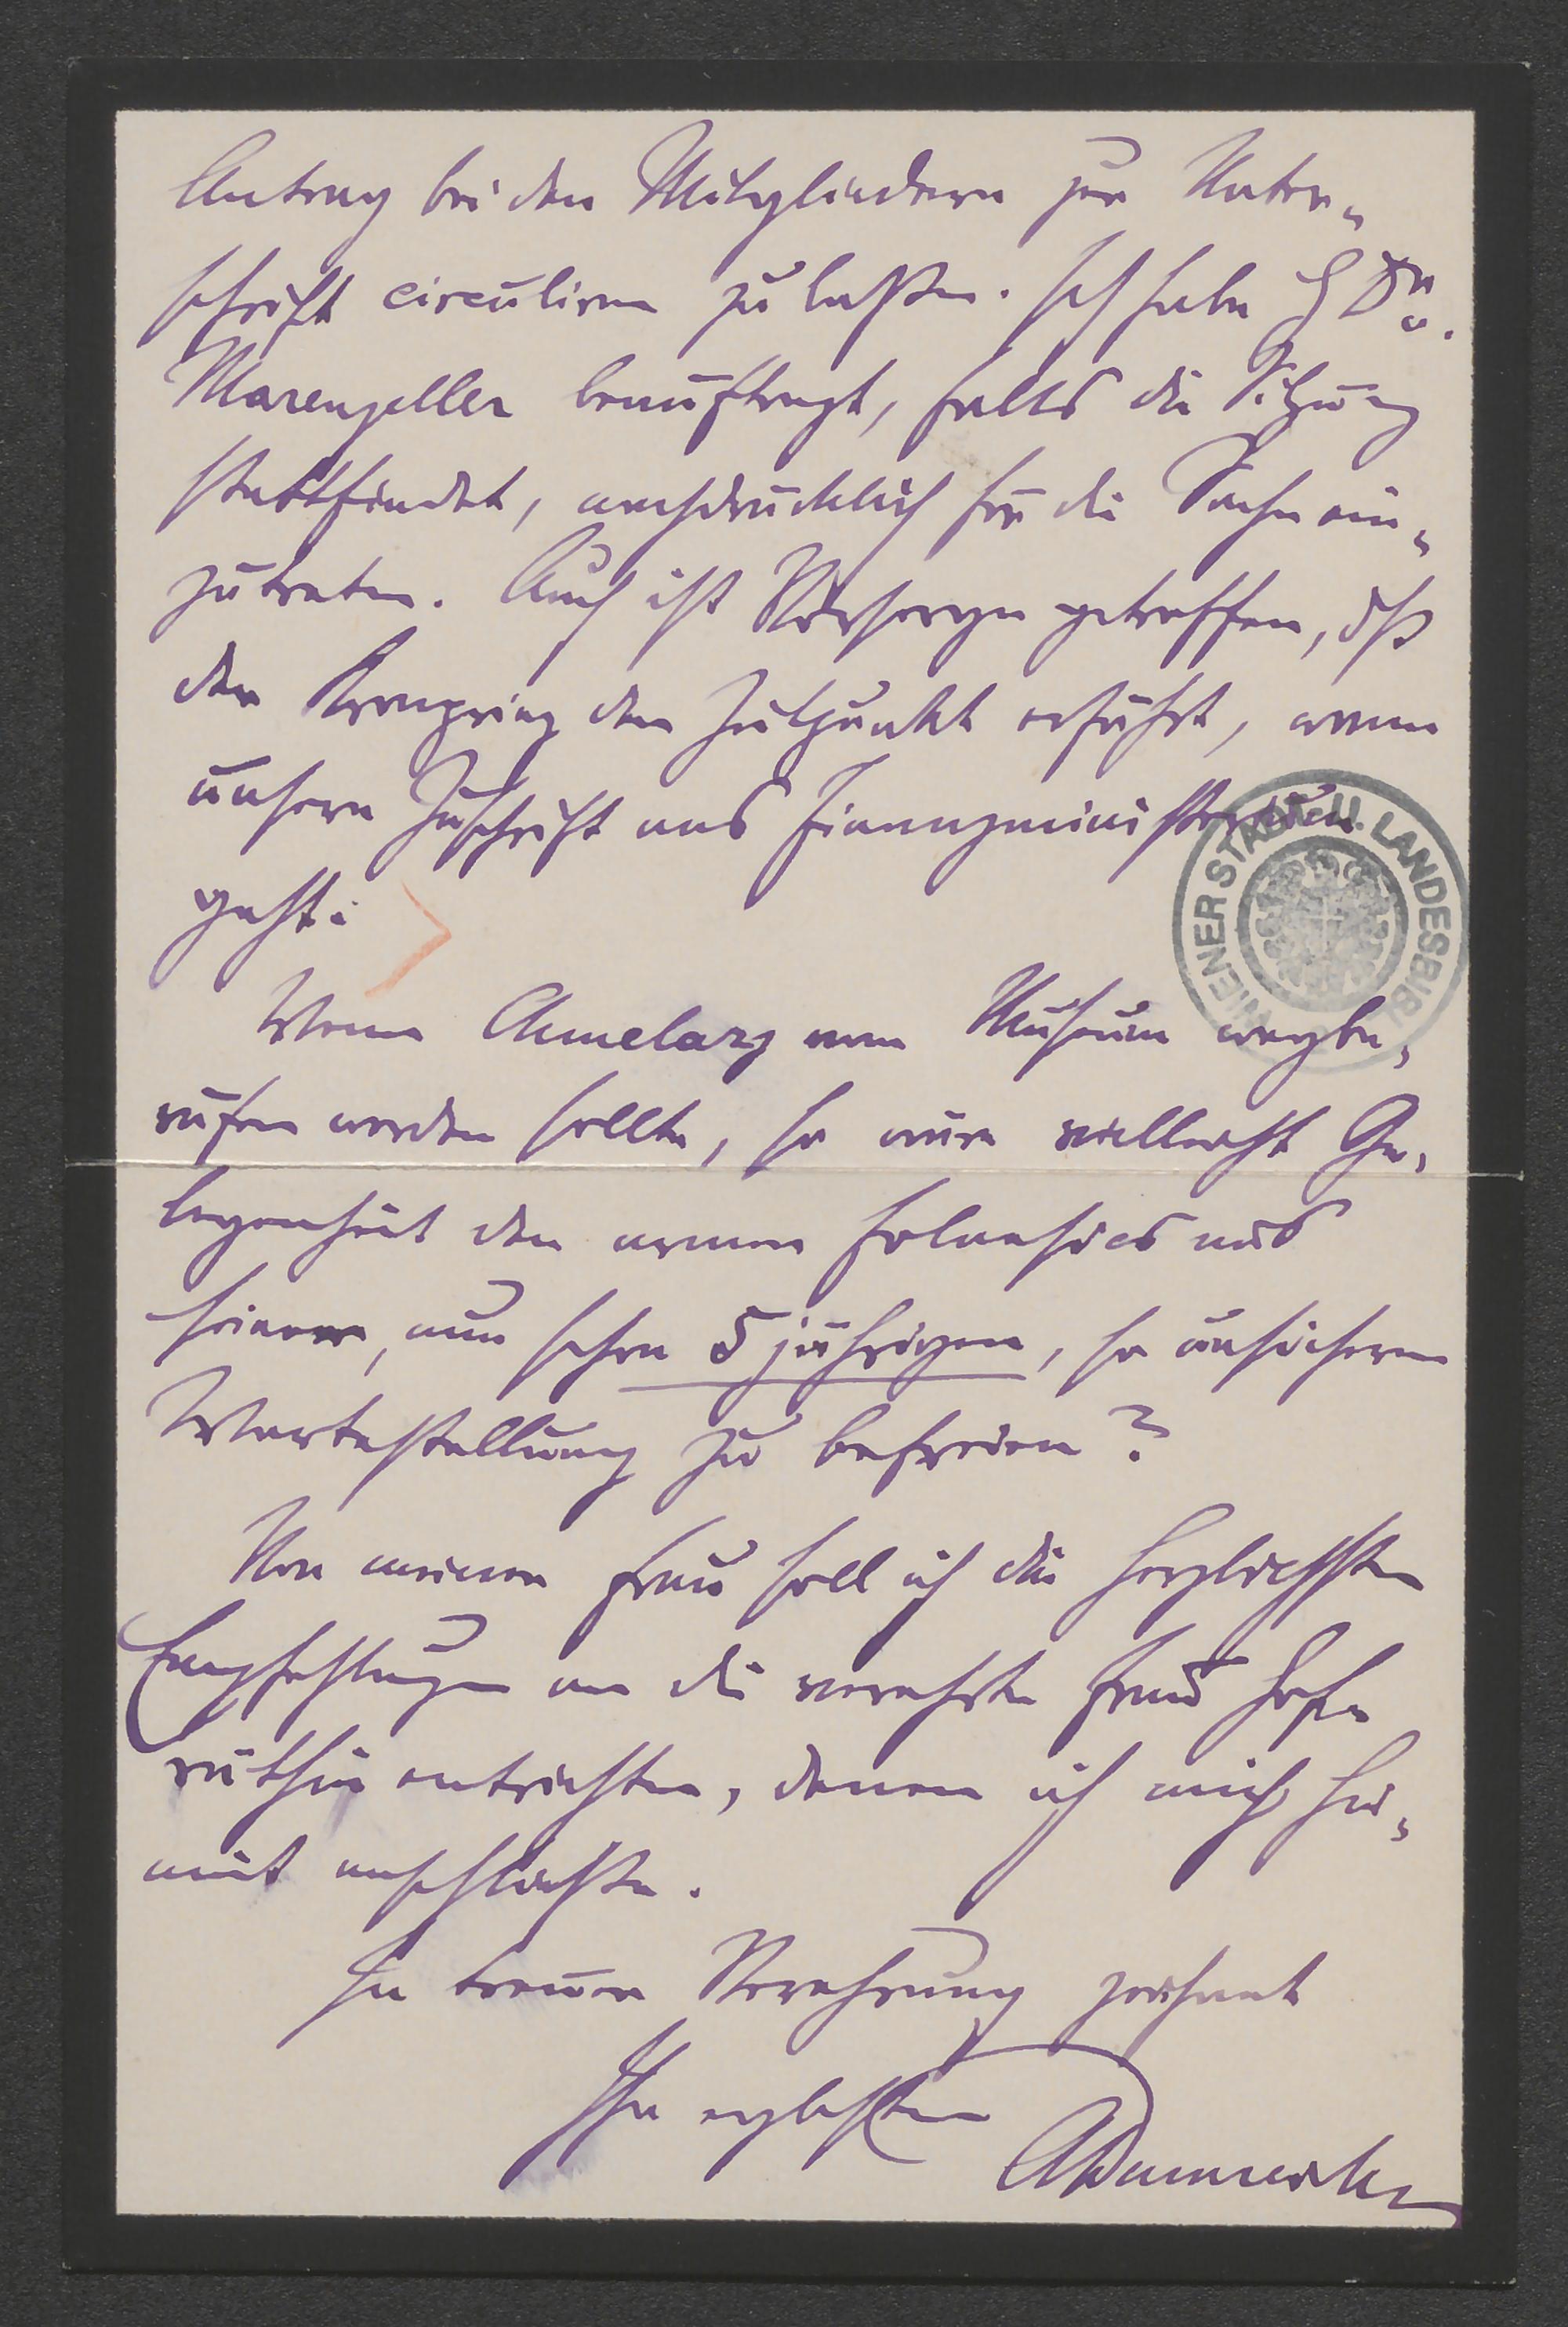 Antrag bei den Mitgliedern zur Unter„
schrift circuliren zu laßen. Ich habe H Dr. v.
Marenzeller beauftragt, falls die Sitzung
stattfindet, nachdrücklich für die Sache ein„
zutreten. Auch ist Vorsorge getroffen, dß
der Kronprinz den Zeitpunkt erfährt, wenn
unsere Zuschrift ans Finanzministerium
geht.
Wenn Chmelarz vom Museum wegbe„
rufen werden sollte, so wäre vielleicht Ge„
legenheit den armen aus
seiner, nun schon 5 jährigen, so unsicheren
Wartestellung zu befreien?
Von meiner Frau soll ich die herzlichsten
Empfehlungen an die verehrte Frau Hof„
räthin entrichten, denen ich mich hie„
mit anschließe.
In treuer Verehrung zeichnet
Ihr ergebenster
WIENER STADT- U. LANDESBIBL